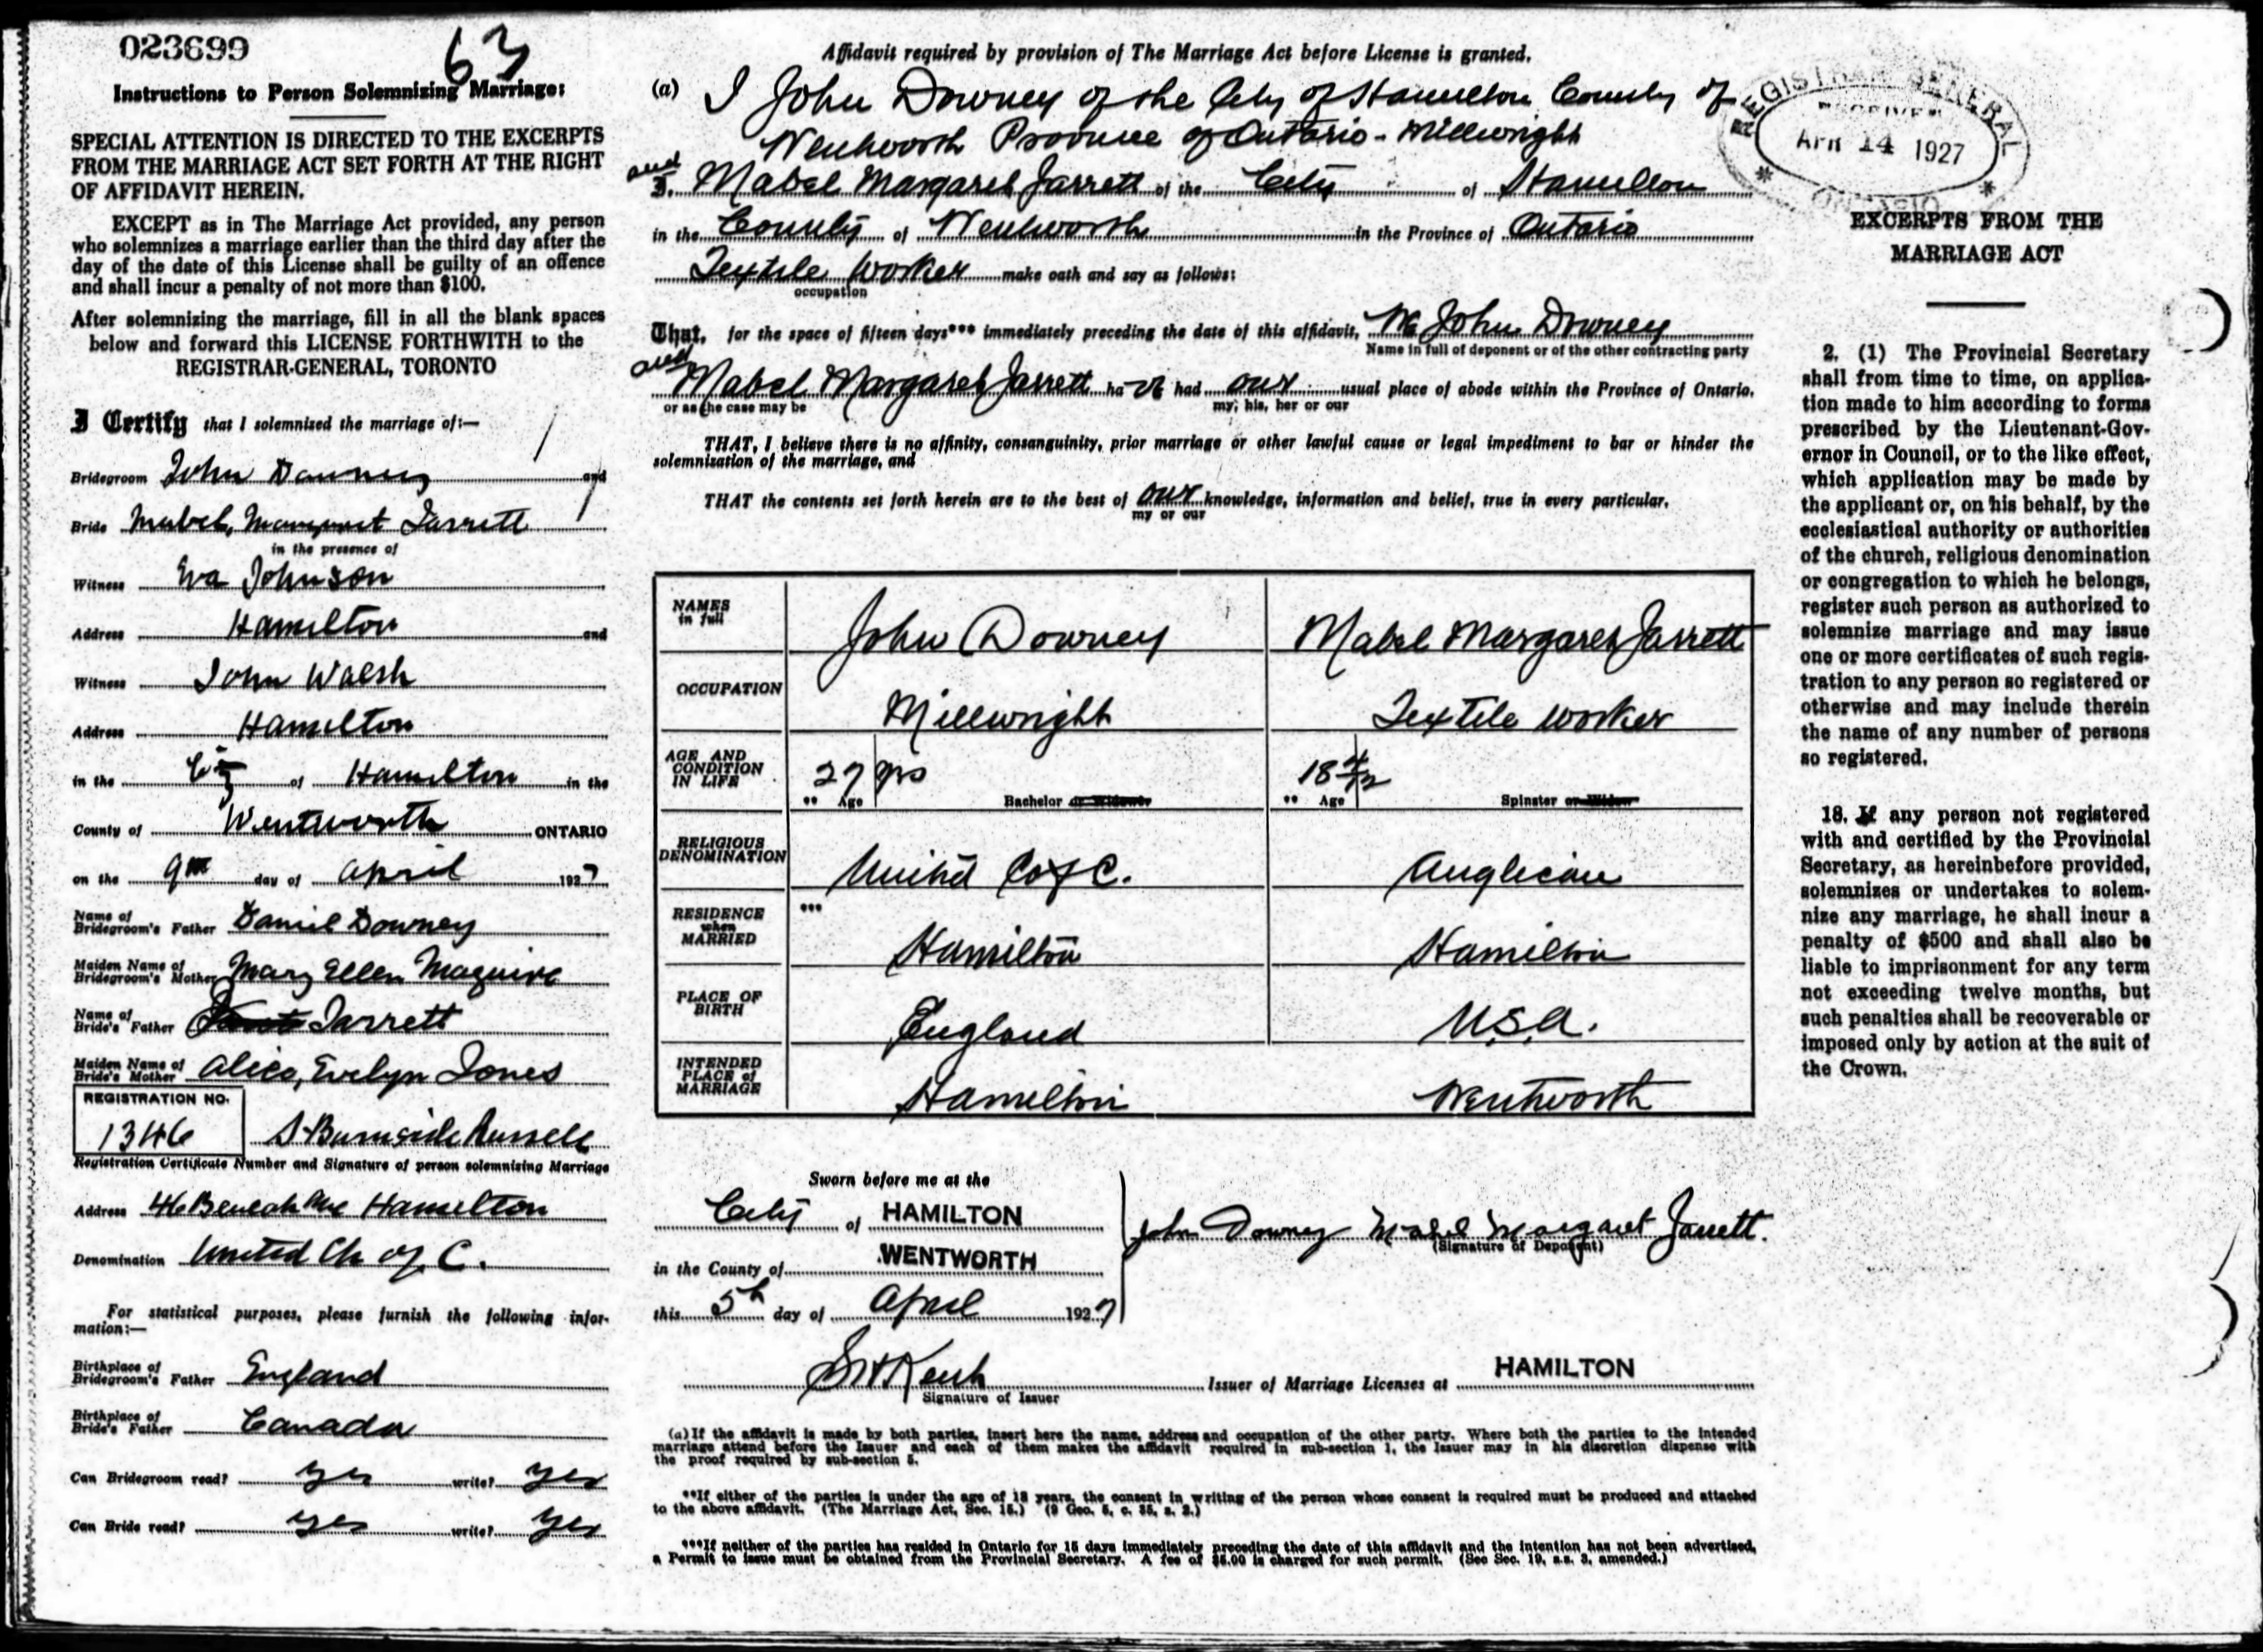 023699
63
Instructions to Person Solemnizing Marriage:
SPECIAL ATTENTION IS DIRECTED TO THE EXCERPTS
FROM THE MARRIAGE ACT SET FORTH AT THE RIGHT
OF AFFIDAVIT HEREIN.
EXCEPT as in The Marriage Act provided, any person
who solemnizes a marriage earlier than the third day after the
day of the date of this License shall be guilty of an offence
and shall incur a penalty of not more than $100.
After solemnizing the marriage, fill in all the blank spaces
below and forward this LICENSE FORTHWITH to the
REGISTRAR-GENERAL, TORONTO
I Certify that I solemnized the marriage of:—
Bridegroom John Downey and
Bride Mabel Margaret Jarrett
in the presence of
Witness Eva Johnson
Address Hamilton and
Witness John Walsh
Address Hamilton
in the City of Hamilton in the
County of Wentworth ONTARIO
on the 9th day of April 1927
Name of
Bridegroom's Father Daniel Downey
Maiden Name of
Bridegroom's Mother Mary Ellen Maguire
Name of
Bride's Father Jarrett
Maiden Name of
Bride's Mother Alice, Evelyn Jones
REGISTRATION NO.
1346 S. Burnside Russell
Registration Certificate Number and Signature of person solemnizing Marriage
Address 46 Ave Hamilton
Denomination United Ch of C.
For statistical purposes, please furnish the following infor-
mation:—
Birthplace of
Bridegroom's Father England
Birthplace of
Bride's Father Canada
Can Bridegroom read? yes write? yes
Can Bride read? yes write? yes
Affidavit required by provision of The Marriage Act before License is granted.
(a) I John Downey of the City of Hamilton County of
Wentworth Province of Ontario - Millwright
and
I. Mabel Margaret Jarrett of the City of Hamilton
in the County of Wentworth in the Province of Ontario
Textile Worker make oath and say as follows:
occupation
That, for the space of fifteen days*** immediately preceding the date of this affidavit, We John Downey
Name in full of deponent or of the other contracting party
and
Mabel Margaret Jarrett ha ve had our usual place of abode within the Province of Ontario.
or as the case may be my, his, her or our
THAT, I believe there is no affinity, consanguinity, prior marriage or other lawful cause or legal impediment to bar or hinder the
solemnization of the marriage, and
THAT the contents set forth herein are to the best of our knowledge, information and belief, true in every particular.
my or our
NAMES
in full
John Downey Mabel Margaret Jarrett
OCCUPATION
Millwright Textile Worker
AGE AND
CONDITION
IN LIFE
27 yrs 18 4/12
** Age Bachelor or Widower ** Age Spinster or Widow
RELIGIOUS
DENOMINATION
United C of C. Anglican
RESIDENCE
when
MARRIED
***
Hamilton Hamilton
PLACE OF
BIRTH
England U.S.A.
INTENDED
PLACE of
MARRIAGE
Hamilton Wentworth
Sworn before me at the
City of HAMILTON
in the County of WENTWORTH
this 5th day of April 1927
John Downey Mabel Margaret Jarrett.
(Signature of Deponent)
Signature of Issuer
Issuer of Marriage Licenses at HAMILTON
(a) If the affidavit is made by both parties, insert here the name, address and occupation of the other party. Where both the parties to the intended
marriage attend before the Issuer and each of them makes the affidavit required in sub-section 1, the Issuer may in his discretion dispense with
the proof required by sub-section 5.
**If either of the parties is under the age of 18 years, the consent in writing of the person whose consent is required must be produced and attached
to the above affidavit. (The Marriage Act, Sec. 15.) (9 Geo. 5, c. 35, s. 2.)
***If neither of the parties has resided in Ontario for 15 days immediately preceding the date of this affidavit and the intention has not been advertised,
a Permit to issue must be obtained from the Provincial Secretary. A fee of $5.00 is charged for such permit. (See Sec. 19, s.s. 3, amended.)
REGISTRAR GENERAL
RECEIVED
APR 14 1927
ONTARIO
EXCERPTS FROM THE
MARRIAGE ACT
2. (1) The Provincial Secretary
shall from time to time, on applica-
tion made to him according to forms
prescribed by the Lieutenant-Gov-
ernor in Council, or to the like effect,
which application may be made by
the applicant or, on his behalf, by the
ecclesiastical authority or authorities
of the church, religious denomination
or congregation to which he belongs,
register such person as authorized to
solemnize marriage and may issue
one or more certificates of such regis-
tration to any person so registered or
otherwise and may include therein
the name of any number of persons
so registered.
18. If any person not registered
with and certified by the Provincial
Secretary, as hereinbefore provided,
solemnizes or undertakes to solem-
nize any marriage, he shall incur a
penalty of $500 and shall also be
liable to imprisonment for any term
not exceeding twelve months, but
such penalties shall be recoverable or
imposed only by action at the suit of
the Crown.